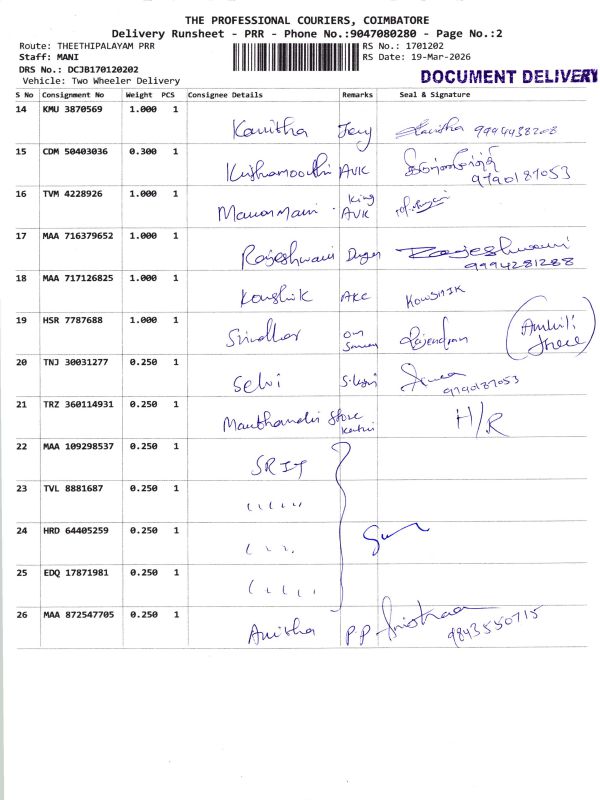 THE PROFESSIONAL COURIERS, COIMBATORE
Delivery Runsheet - PRR - Phone No.:9047080280 - Page No.:2
Route: THEETHIPALAYAM PRR RS No.: 1701202
Staff: MANI RS Date: 19-Mar-2026
DRS No.: DCJB170120202
Vehicle: Two Wheeler Delivery DOCUMENT DELIVERY
S No Consignment No Weight PCS Consignee Details Remarks Seal & Signature
14 KMU 3870569 1.000 1
Kavitha 9994438208
15 CDM 50403036 0.300 1
AVK 9790187053
16 TVM 4228926 1.000 1
King
AVK
17 MAA 716379652 1.000 1
Rajeshwari Rajeshwari
9994281288
18 MAA 717126825 1.000 1
Koushik AKC KOWSHIK
19 HSR 7787688 1.000 1
Sridhar Om Rajendran
20 TNJ 30031277 0.250 1
Selvi
9790187053
21 TRZ 360114931 0.250 1
Store H/R
22 MAA 109298537 0.250 1
SRIT
23 TVL 8881687 0.250 1
24 HRD 64405259 0.250 1
25 EDQ 17871981 0.250 1
26 MAA 872547705 0.250 1
Anitha PP 9843550715